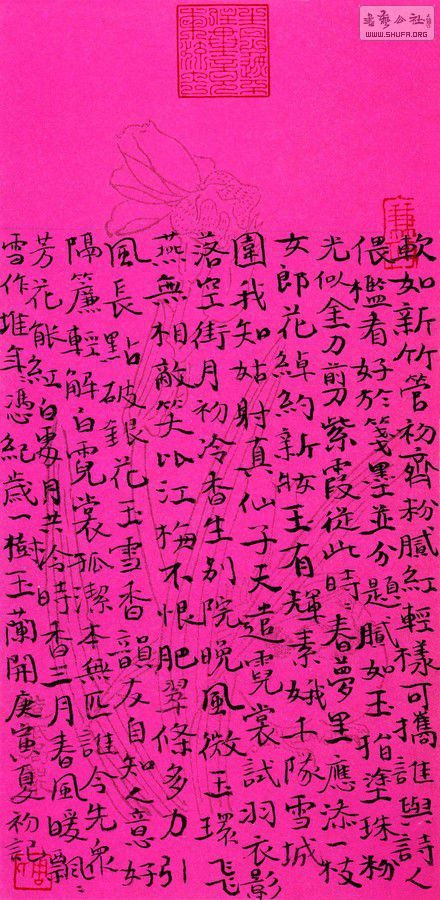 書藝公社
WWW.SHUFA.ORG
軟如新竹管初齊粉膩紅輕樣可攜誰與詩人
偎檻看好於箋墨並分題膩如玉指塗珠粉
光似金刀剪紫霞從此時〻春夢里應添一枝
女郎花綽約新妝玉有輝素娥千隊雪城
圍我知姑射真仙子天遣霓裳試羽衣影
落空街月初冷香生別院晚風微玉環飛
燕無相敵笑比江梅不恨肥翠條多力引
風長點破銀花玉雪香韻友自知人意好
隔簾輕解白霓裳孤潔本無匹誰令先衆
芳花能紅白處月共冷時香三月春風暖飄〻
雪作堆年〻憑紀歲一樹玉蘭開庚寅夏初記